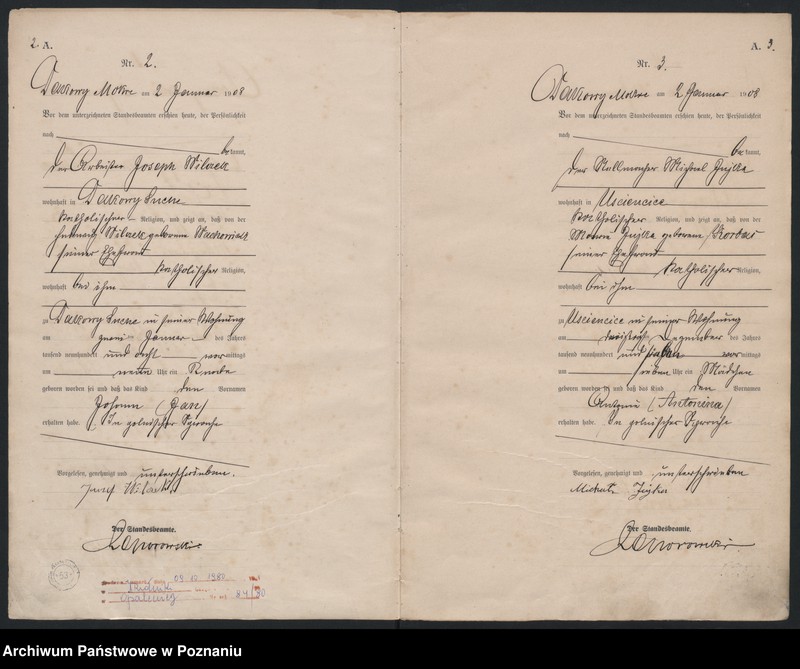 2 A.
Nr. 2.
Dakowy Mokre am 2 Januar 1908
Vor dem unterzeichneten Standesbeamten erschien heute, der Persönlichkeit
nach
be kannt,
der Arbeiter Joseph
wohnhaft in Dakowy Suche
katholischer Religion, und zeigt an, daß von der
geborene
seiner Ehefrau
katholischer Religion,
wohnhaft bei ihm
zu Dakowy Suche in seiner Wohnung
am zwei Januar des Jahres
tausend neunhundert und acht vormittags
um neun Uhr ein Knabe
geboren worden sei und daß das Kind den Vornamen
Johann (Jan)
erhalten habe. In polnischer Sprache
Vorgelesen, genehmigt und unterschrieben.
Józef
Der Standesbeamte.
09.10 1980
Opalenicy
84/80
A. 3.
Nr. 3.
Dakowy Mokre am 2 Januar 1908
Vor dem unterzeichneten Standesbeamten erschien heute, der Persönlichkeit
nach
be kannt,
der Stellmacher Michael
wohnhaft in Usciencice
katholischer Religion, und zeigt an, daß von der
geborene
seiner Ehefrau
katholischer Religion,
wohnhaft bei ihm
zu Usciencice in seiner Wohnung
am dreißigsten Dezember des Jahres
tausend neunhundert und sieben vormittags
um sieben Uhr ein Mädchen
geboren worden sei und daß das Kind den Vornamen
Antonie (Antonina)
erhalten habe. In polnischer Sprache
Vorgelesen, genehmigt und unterschrieben
Michał
Der Standesbeamte.
Archiwum Państwowe w Poznaniu